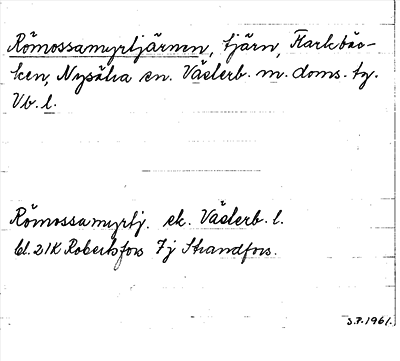 Römossamyrtjärnen, tjärn, Harkbäc-
ken, Nysätra sn. Västerb. m. doms. tg.
Vb. l.
Römossamyrtj. ek. Västerb. l.
bl. 21K Robertsfors 7j Strandfors.
3.7.1961.